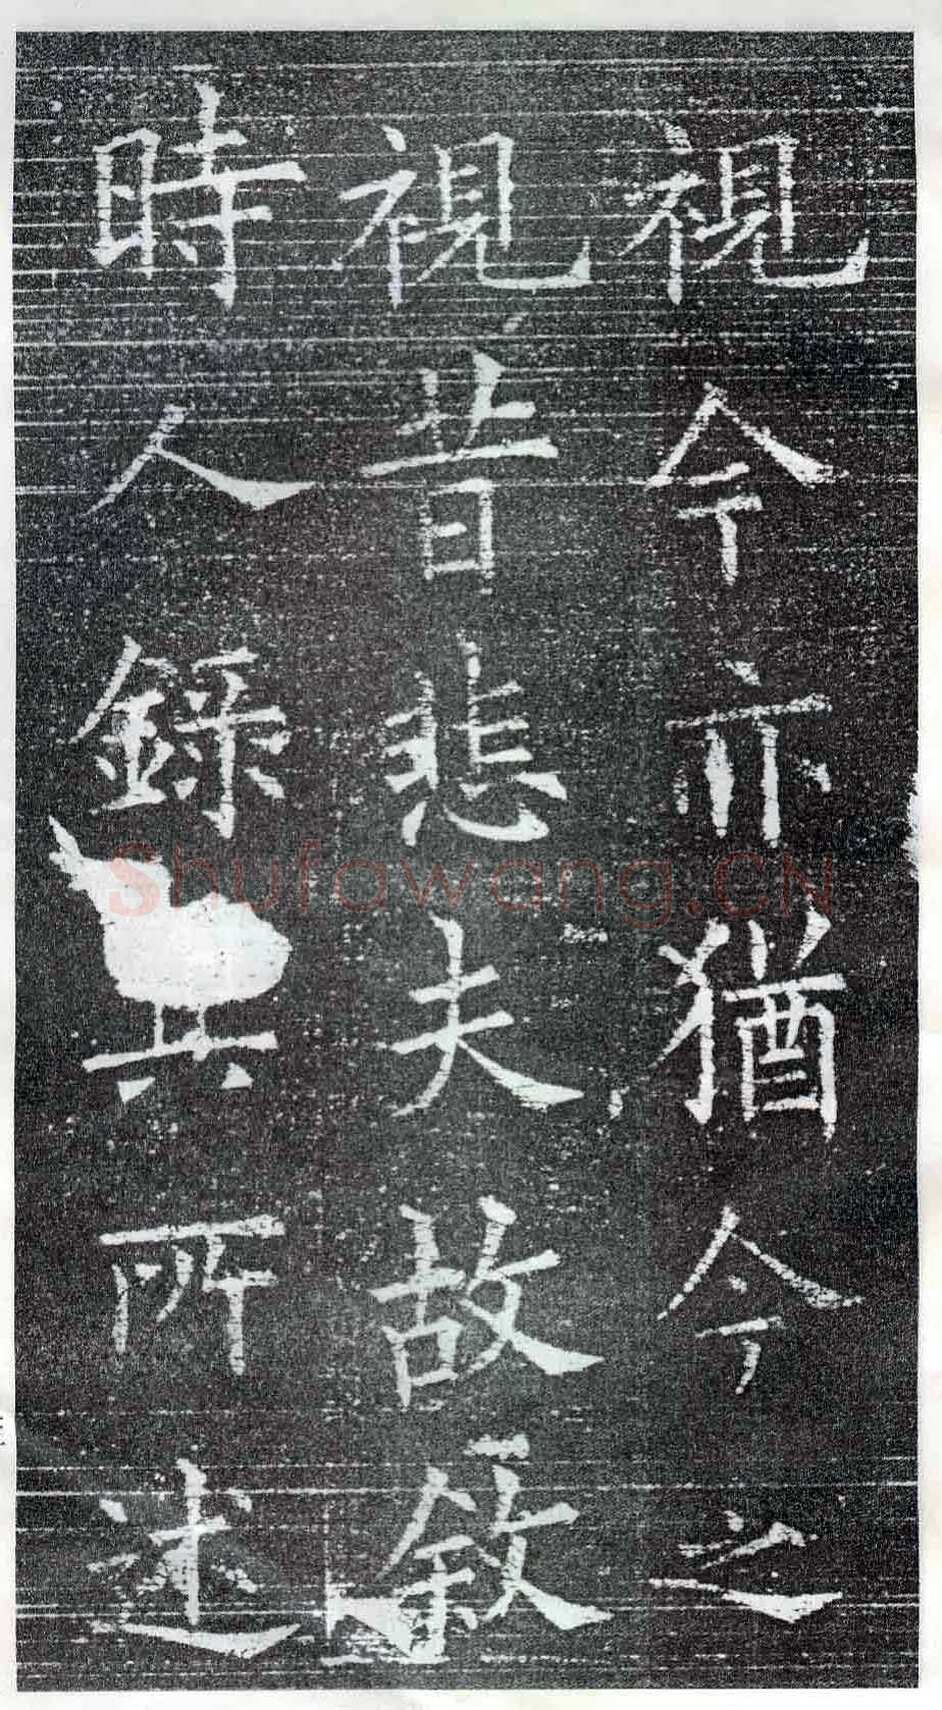 視今亦猶今之
視昔悲夫故敘
時人錄其所述
Shufawang.CN